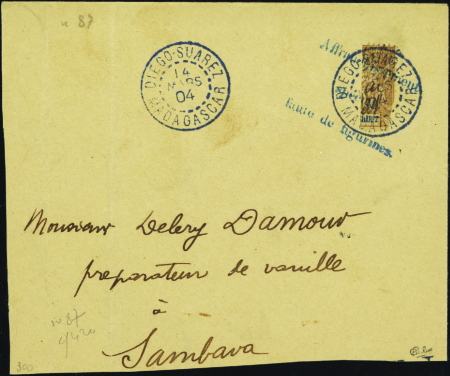 n 87
DIEGO-SUAREZ
14
MARS
04
MADAGASCAR
DIEGO-SUAREZ
04
MADAGASCAR
faute de figurines.
Monsieur Delery Damour
preparateur de vanille
à
Sambava
n 87
300